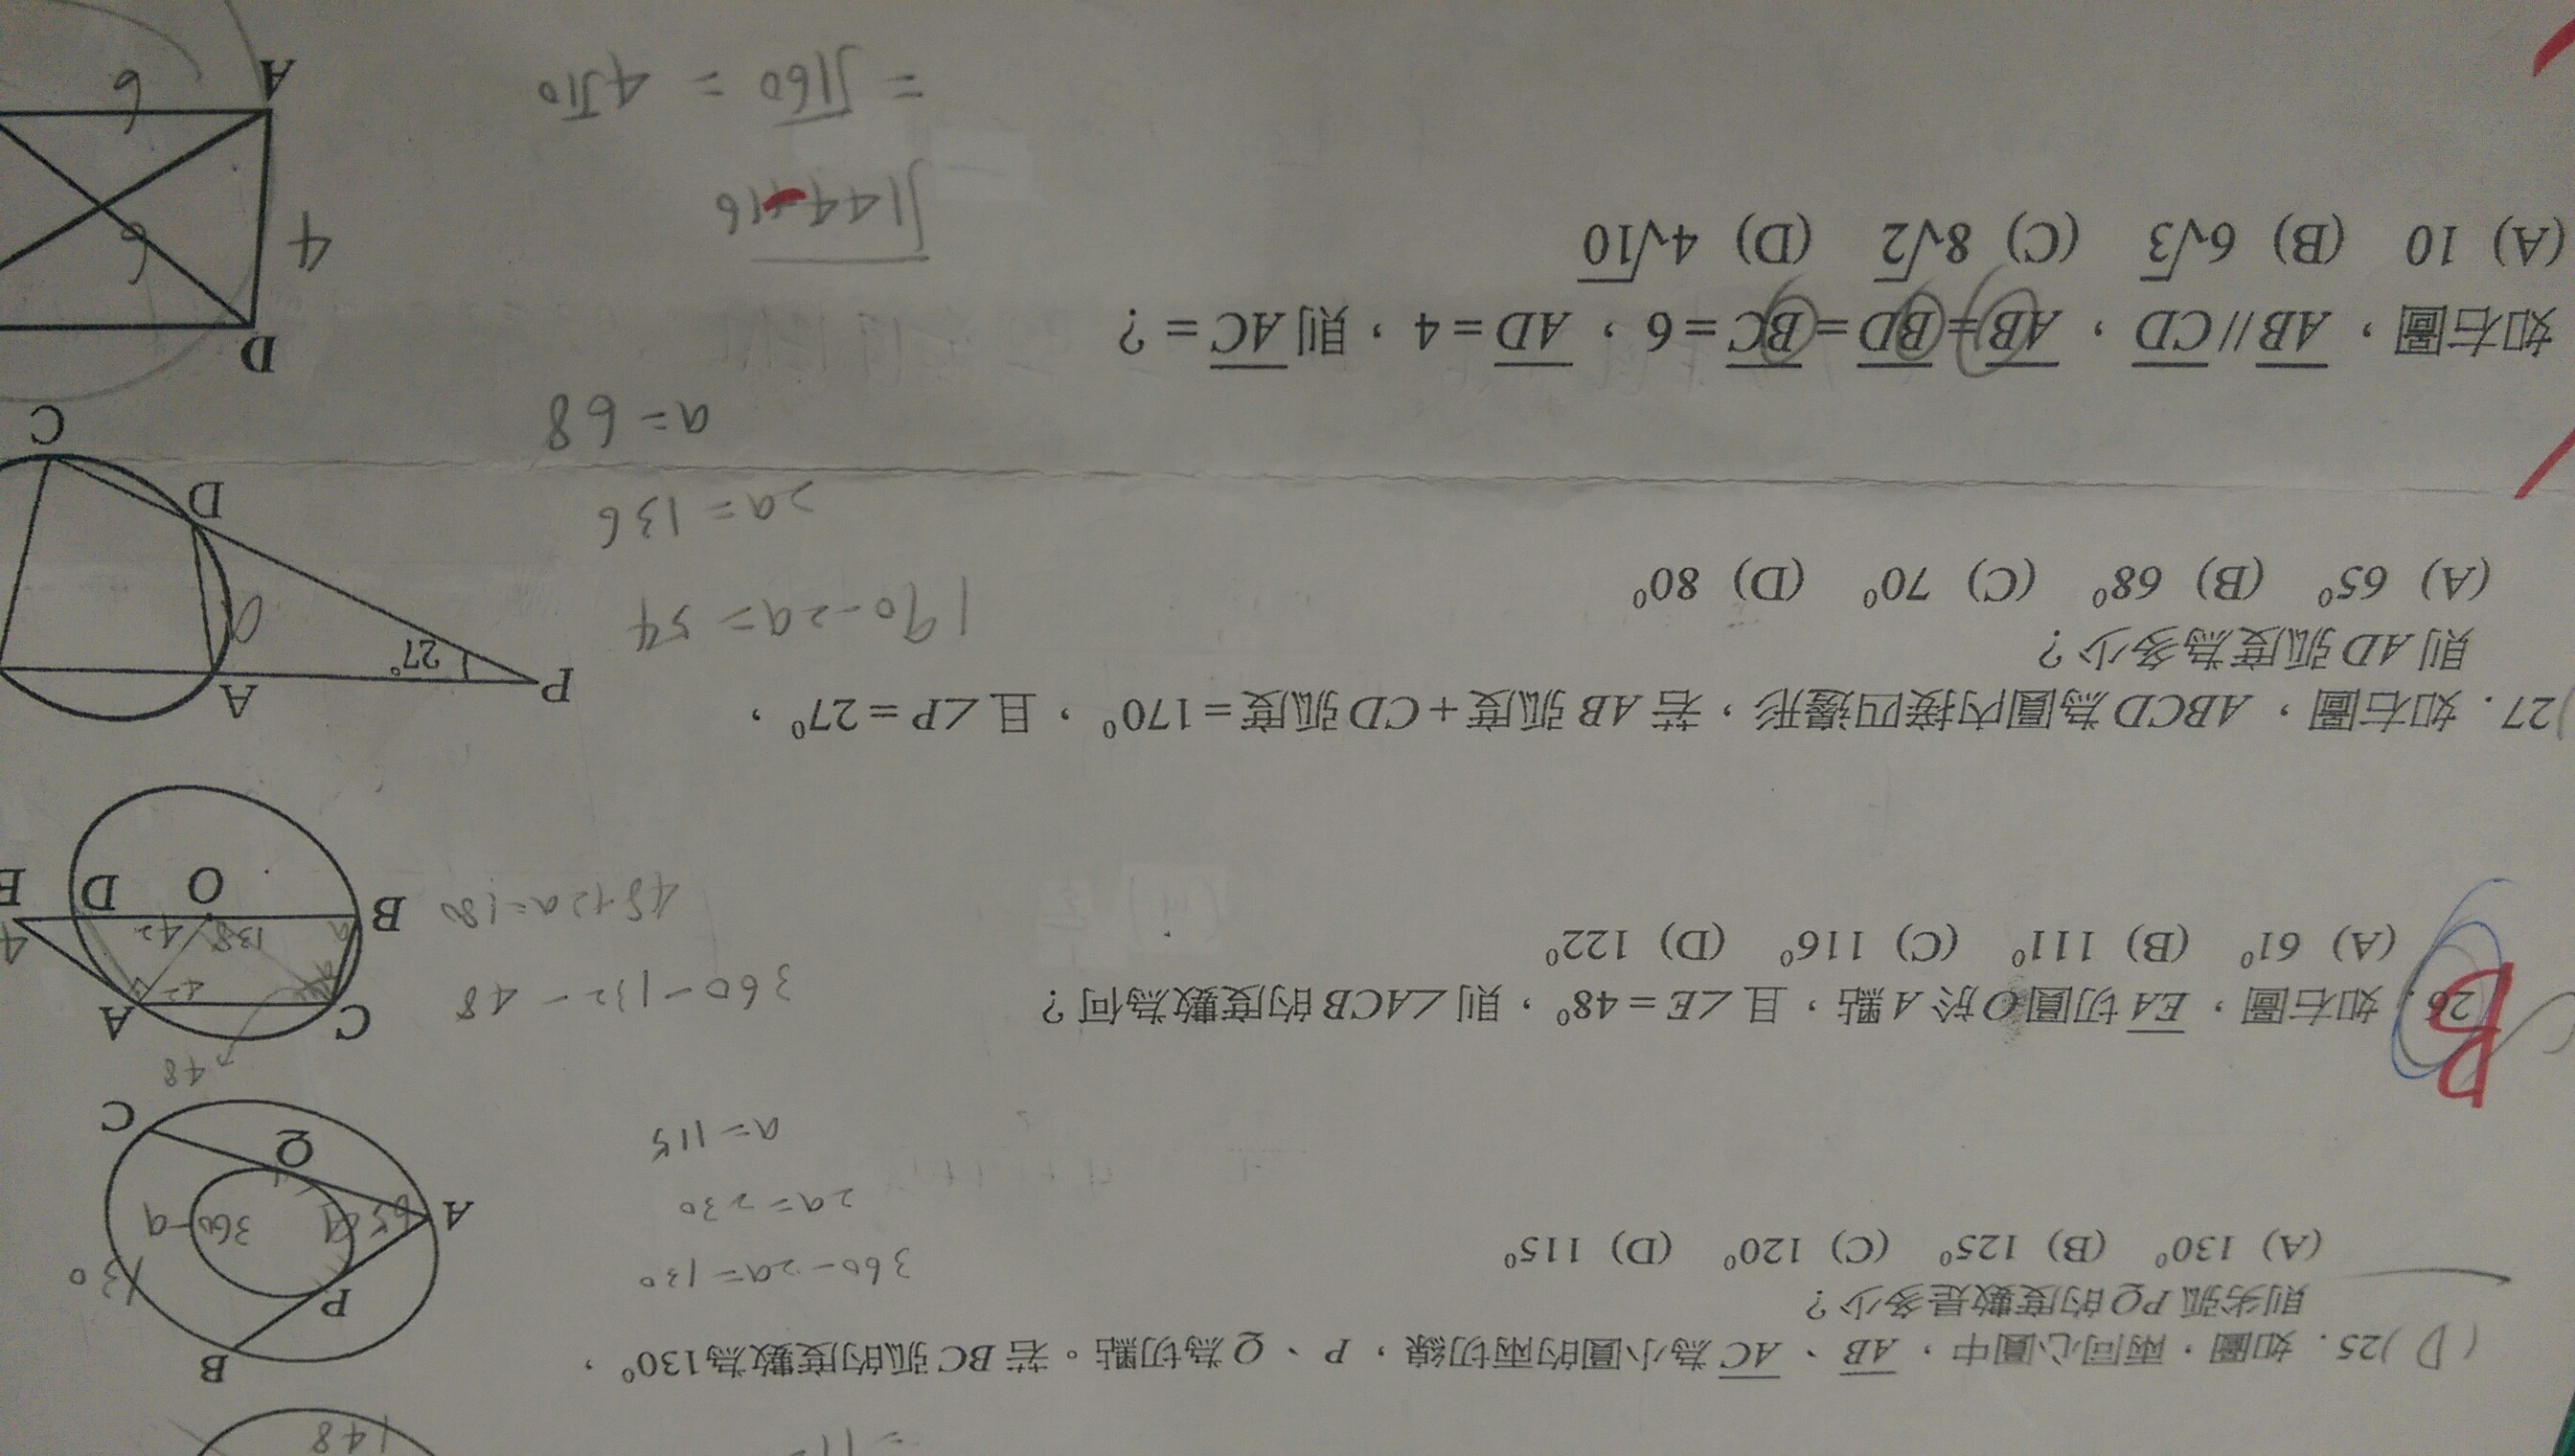 148
= 11
(D) 25. 如圖，兩同心圓中，AB、AC為小圓的兩切線，P、Q為切點。若BC弧的度數為130°，
則劣弧PQ的度數是多少？
(A) 130° (B) 125° (C) 120° (D) 115°
360-2a=130
2a=230
a=115
B
P
A
Q
C
130
360-a
65
a
B
26. 如右圖，EA切圓O於A點，且∠E=48°，則∠ACB的度數為何？
(A) 61° (B) 111° (C) 116° (D) 122°
360-132-48
48+2a=180
48
C
A
B
O
D
E
42
138
42
a
4
)27. 如右圖，ABCD為圓內接四邊形，若AB弧度+CD弧度=170°，且∠P=27°，
則AD弧度為多少？
(A) 65° (B) 68° (C) 70° (D) 80°
190-2a=54
2a=136
a=68
P
27°
A
a
D
C
如右圖，AB//CD，AB=BD=BC=6，AD=4，則AC=？
(A) 10 (B) 6√3 (C) 8√2 (D) 4√10
√144+16
=√160=4√10
D
4
6
A
6